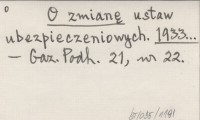 O zmianę ustaw
ubezpieczeniowych. 1933...
— Gaz. Podh. 21, nr 22.